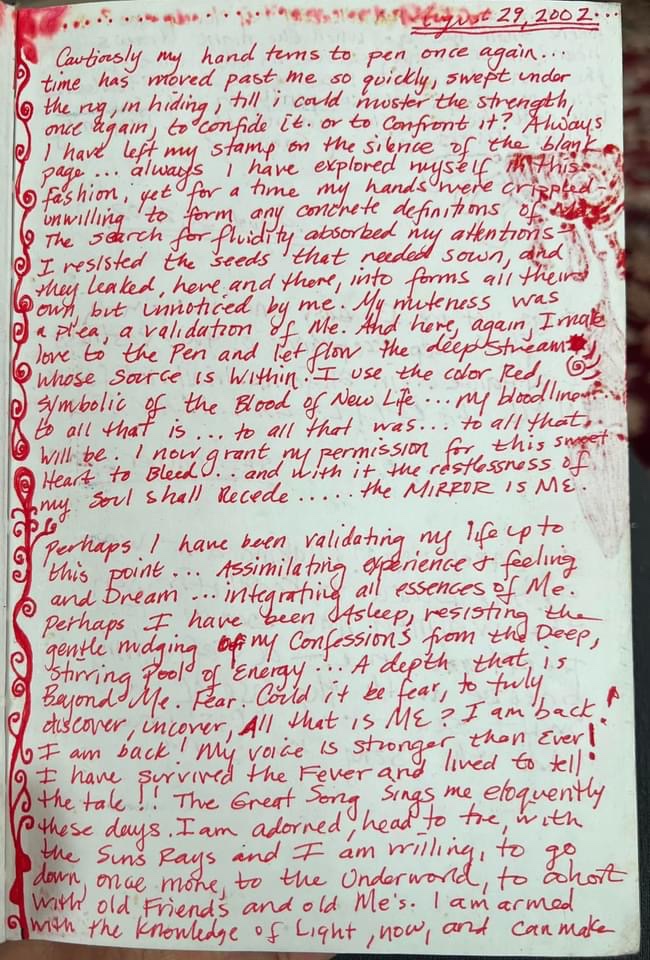 August 29, 2002...
Cautiously my hand turns to pen once again...
time has moved past me so quickly, swept under
the rug, in hiding, till i could muster the strength,
once again, to confide it. or to confront it? Always
I have left my stamp on the silence of the blank
page... always I have explored myself in this
fashion, yet for a time my hands were crippled -
unwilling to form any concrete definitions of Me.
The search for fluidity absorbed my attentions -
I resisted the seeds that needed sown, and
they leaked, here and there, into forms all their
own, but unnoticed by me. My muteness was
a plea, a validation of Me. And here, again, I make
love to the Pen and let flow the deep Stream
whose Source is Within. I use the color Red,
Symbolic of the Blood of New Life... my bloodline
to all that is... to all that was... to all that
will be. I now grant my permission for this sweet
Heart to Bleed... and with it the restlessness of
my Soul shall Recede..... the MIRROR IS ME.
Perhaps I have been validating my life up to
this point... Assimilating experience & feeling
and Dream... integrating all essences of Me.
Perhaps I have been Asleep, resisting the
gentle nudging of my Confessions from the Deep,
Stirring Pool of Energy... A depth that is
Beyond Me. Fear. Could it be fear, to truly
discover, uncover, All that is ME? I am back!
I am back! My voice is stronger than Ever!
I have survived the Fever and lived to tell
the tale!! The Great Song Sings me eloquently
these days. I am adorned, head to toe, with
the Suns Rays and I am willing, to go
down, once more, to the Underworld, to cohort
with old Friends and old Me's. I am armed
with the knowledge of Light, now, and can make